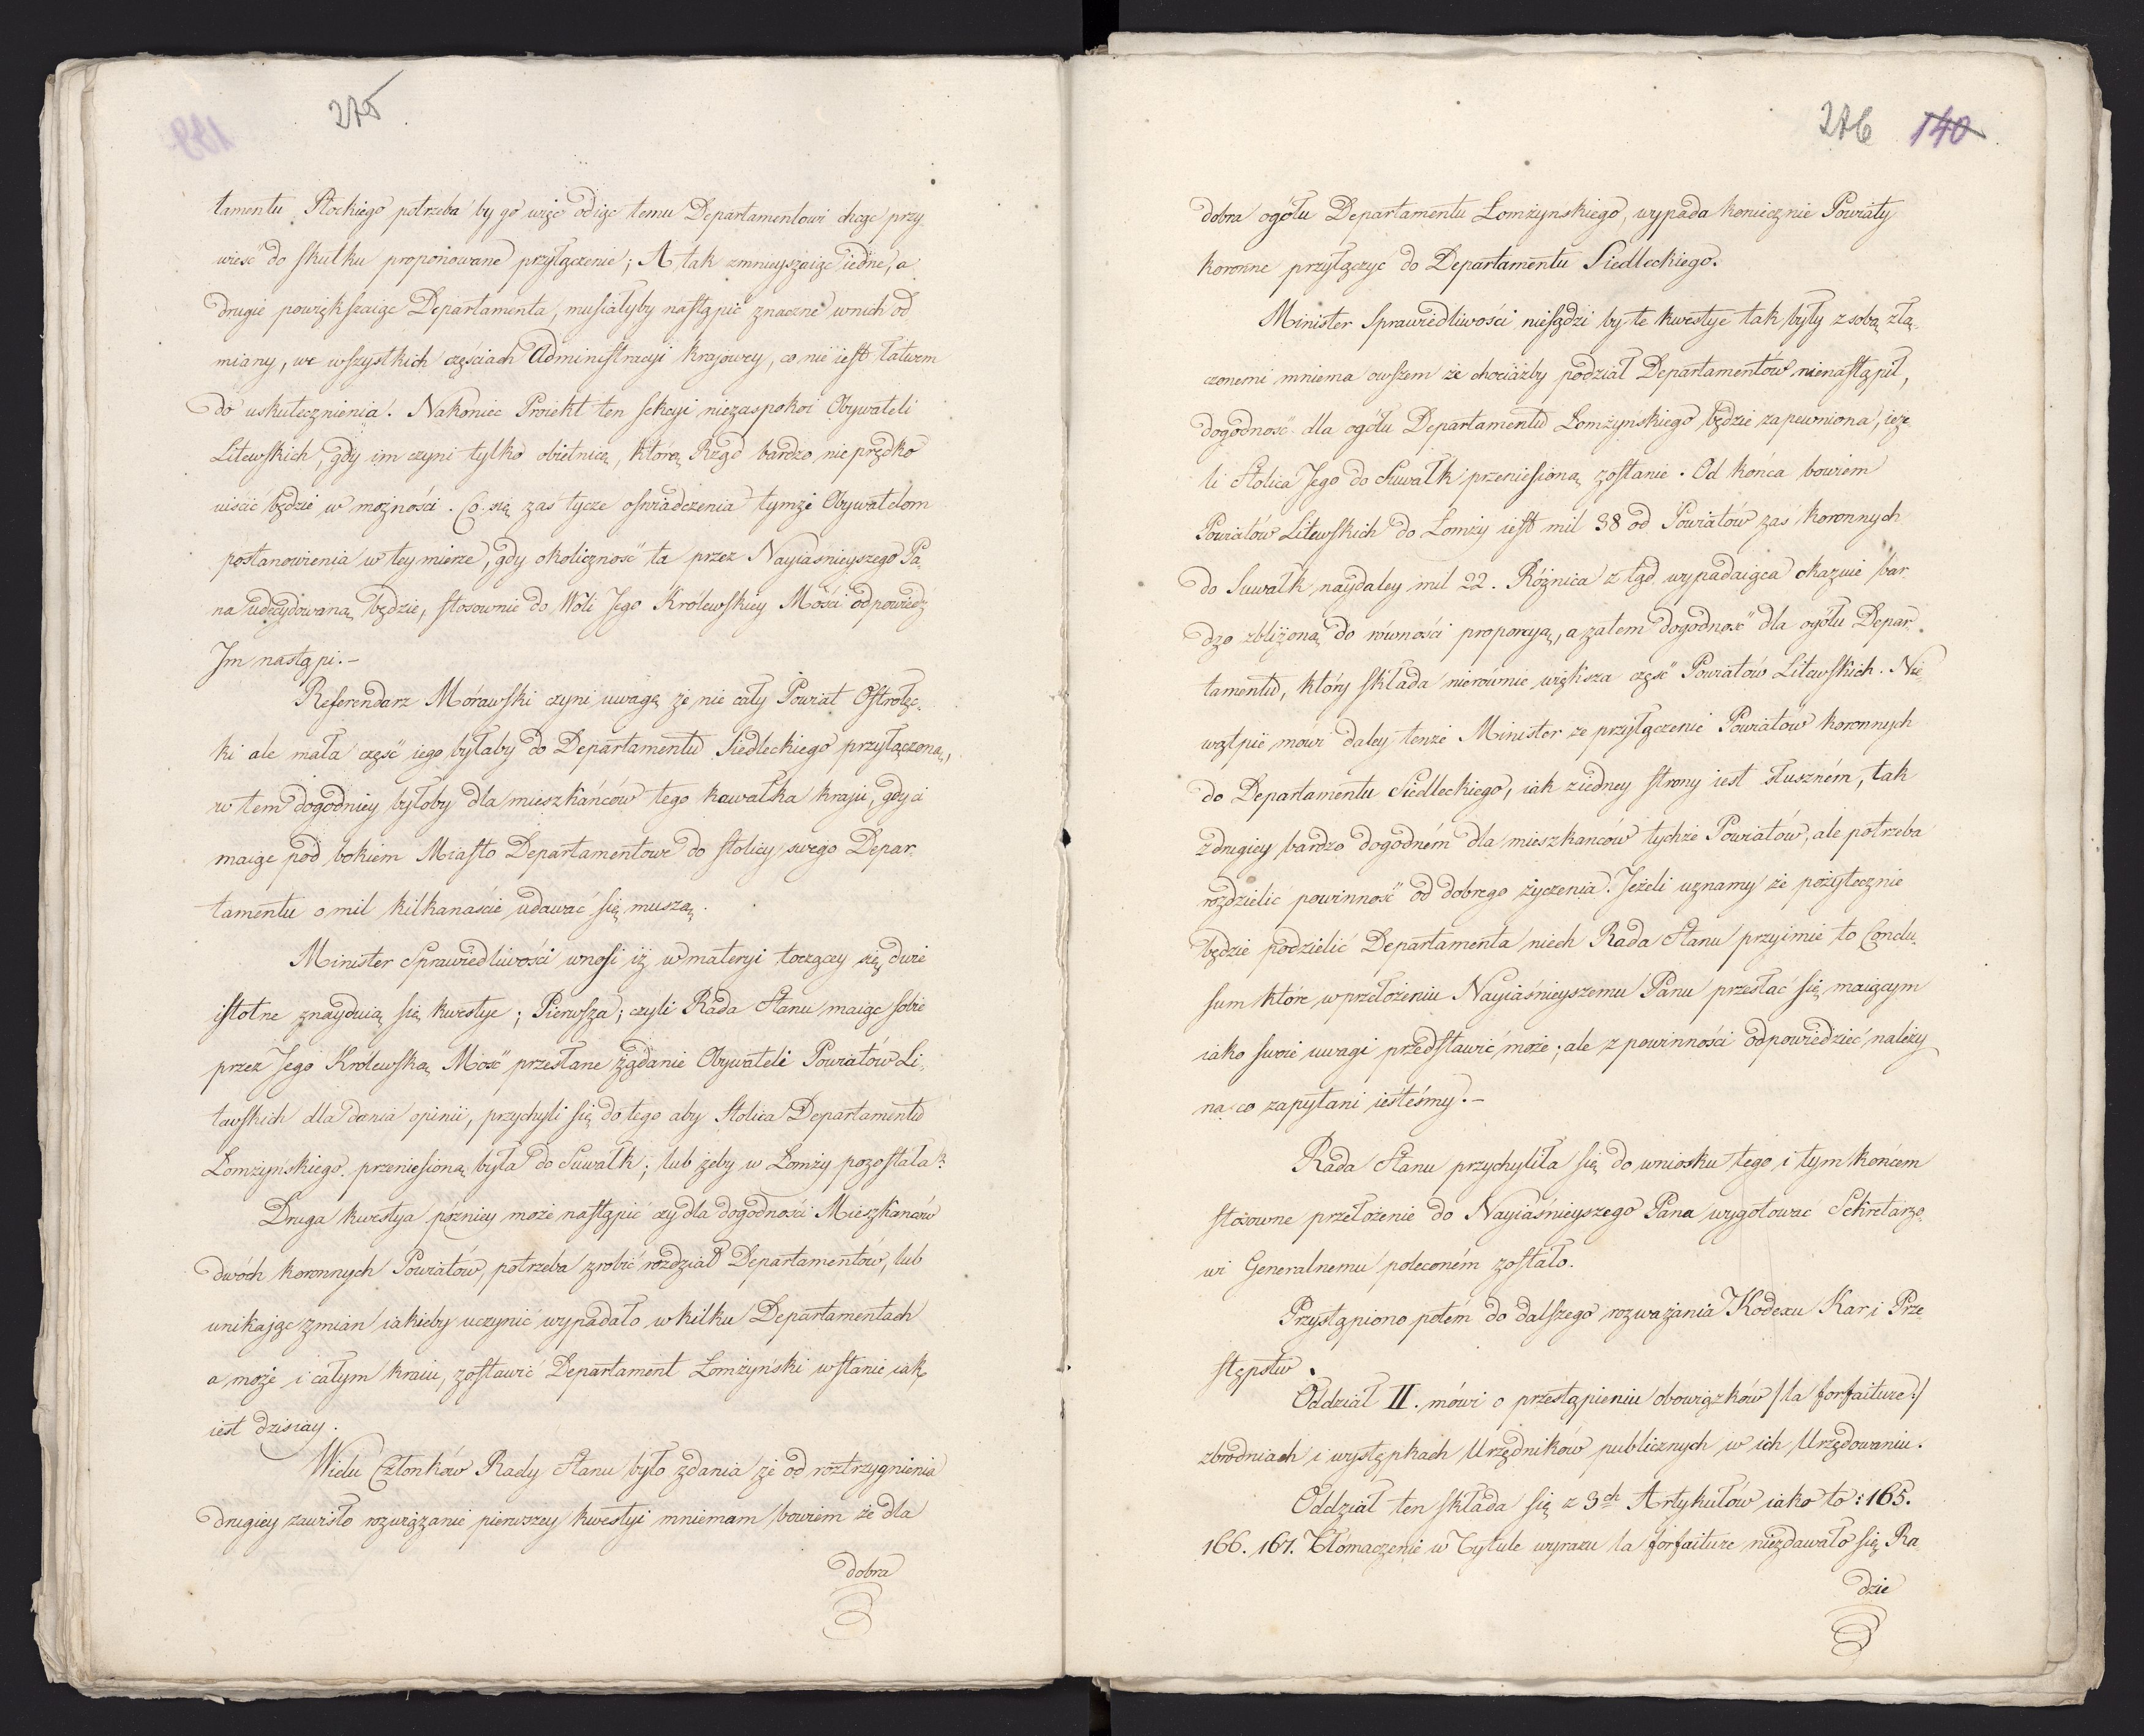 275
tamentu Płockiego potrzeba by go więc odiąc temu Departamentowi chcąc przy
wieść do skutku proponowane przyłączenie; A tak zmnieyszaiąc iedne, a
drugie powiększaiąc Departamenta, musiałyby nastąpić znaczne w nich od
miany, we wszystkich częściach Administracyi krajowey, co nie iest łatwem
do uskutecznienia. Nakoniec Proiekt ten Sekcyi niezaspokoi Obywateli
Litewskich, gdy im czyni tylko obietnicę, którą Rząd bardzo nie prędko
uiścić będzie w możności. Co się zaś tycze oświadczenia tymże Obywatelom
postanowienia w tey mierze, gdy okoliczność ta przez Nayiaśnieyszego Pa
na udecydowaną będzie, stosownie do Woli Jego Królewskiey Mości odpowiedź
Im nastąpi.-
Referendarz Morawski czyni uwagę że nie cały Powiat Ostrołęc,
ki ale mała część iego byłaby do Departamentu Siedleckiego przyłączoną,
w tem dogodniey byłoby dla mieszkańców tego kawałka kraju, gdy ci
maiąc pod bokiem Miasto Departamentowe do stolicy swego Depar
tamentu o mil kilkanaście udawać się muszą.
Minister Sprawiedliwości wnosi iż w materyi toczącey się dwie
istotne znayduią się kwestye; Pierwsza; czyli Rada Stanu maiąc sobie
przez Jego Królewską Mość przesłane żądanie Obywateli Powiatów Li,
tewskich dla dania opinii, przychyli się do tego aby Stolica Departamentu
Łomżyńskiego przeniesioną była do Suwałk; lub żeby w Łomży pozostała?
Druga kwestya pózniey może nastąpić czy dla dogodności Mieszkańców
dwóch koronnych Powiatów, potrzeba zrobić rozdział Departamentów, lub
unikając zmian iakieby uczynić wypadało w kilku Departamentach
a może i całym kraiu, zostawić Departament Łomżyński w stanie iak
iest dzisiay.
Wielu Członków Rady Stanu było zdania że od roztrzygnienia
drugiey zawisło rozwiązanie pierwszey kwestyi mniemam bowiem że dla
dobra
276 140
dobra ogółu Departamentu Łomżynskiego, wypada koniecznie Powiaty
koronne przyłączyć do Departamentu Siedleckiego.
Minister Sprawiedliwości niesądzi by te kwestye tak były z sobą złą,
czonemi mniema owszem że chociażby podział Departamentów nienastąpił,
dogodność dla ogółu Departamentu Łomżynskiego będzie zapewniona, ieże
li Stolica Jego do Suwałk przeniesioną zostanie. Od końca bowiem
Powiatów Litewskich do Łomży iest mil 38 od Powiatów zaś koronnych
do Suwałk naydaley mil 22. Różnica z tąd wypadaiąca okazuie bar
dzo zbliżoną do równości proporcyą, a zatem dogodność dla ogółu Depar
tamentu, który składa nierównie większa część Powiatów Litewskich. Nie
wątpię mówi daley tenże Minister że przyłączenie Powiatów koronnych
do Departamentu Siedleckiego, iak z iedney strony iest słuszném, tak
z drugiey bardzo dogodném dla mieszkańców tychże Powiatów, ale potrzeba
rozdzielić powinność od dobrego życzenia. Jeżeli uznamy że pożytecznie
będzie podzielić Departamenta niech Rada Stanu przyimie to Conclu,
sum które w przełożeniu Nayiaśnieyszemu Panu przesłać się maiącym
iako swoie uwagi przedstawić może; ale z powinności odpowiedzieć należy
na co zapytani iesteśmy.-
Rada Stanu przychyliła się do wniosku tego i tym końcem
stosowne przełożenie do Nayiaśnieyszego Pana wygotować Sekretarzo
wi Generalnemu poleconém zostało.
Przystąpiono potém do dalszego rozważania Kodexu Kar i Prze
stępstw.
Oddział II. mówi o przestąpieniu obowiązków /la forfaiture:/
zbrodniach i występkach Urzędników publicznych w ich Urzędowaniu.
Oddział ten składa się z 3ch Artykułów iako to: 165.
166. 167. Tłómaczenie w Tytule wyrazu la forfaiture niezdawało się Ra
dzie